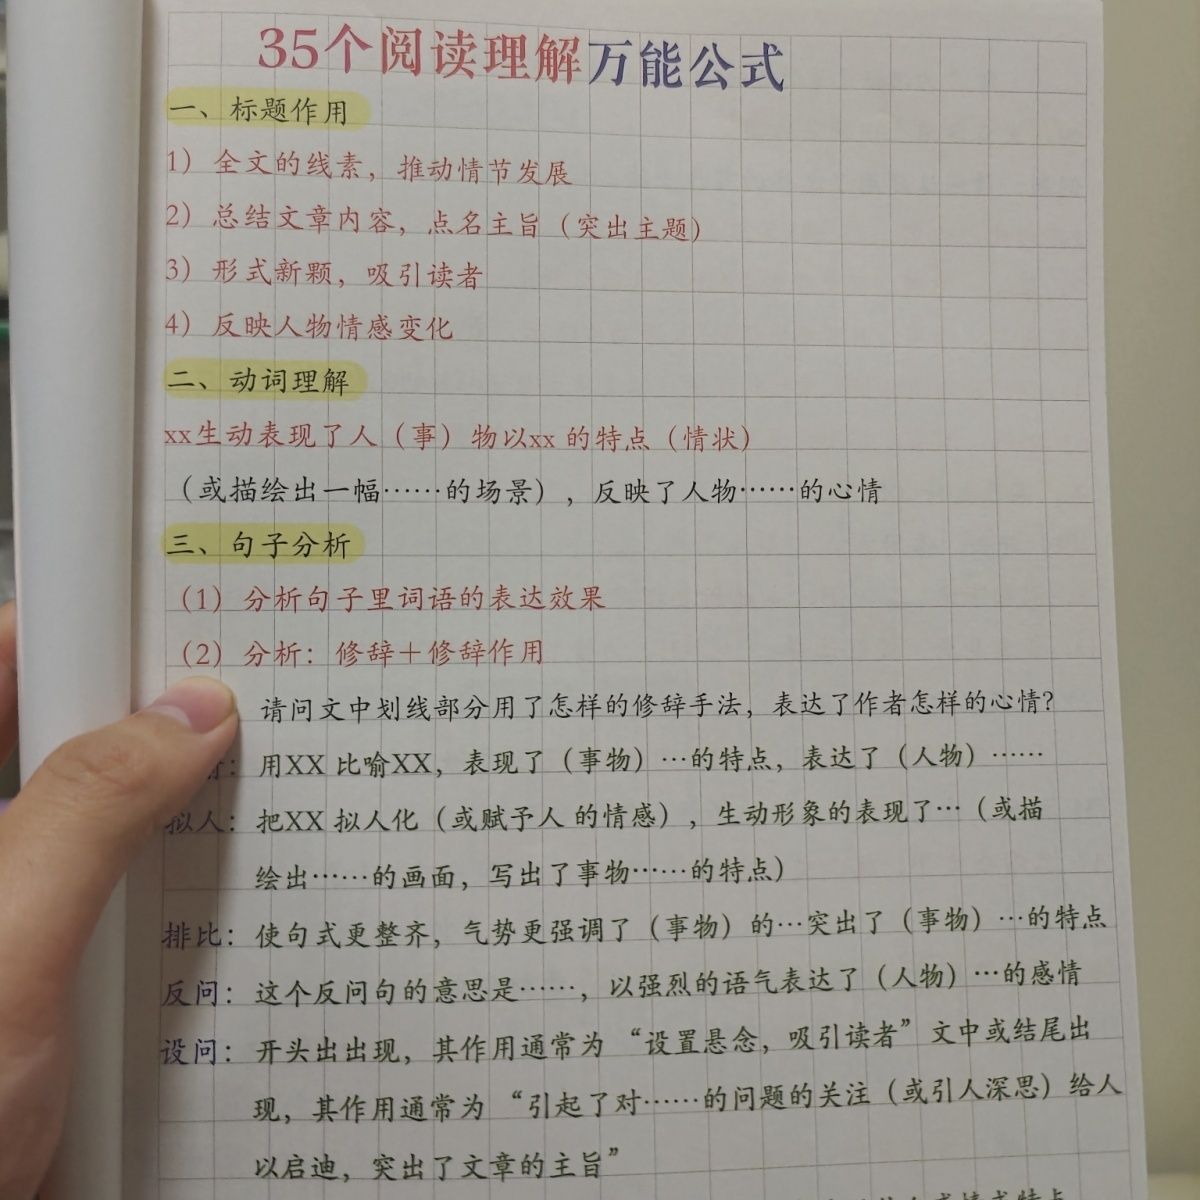 35个阅读理解万能公式
一、标题作用
1）全文的线素，推动情节发展
2）总结文章内容，点名主旨（突出主题）
3）形式新颗，吸引读者
4）反映人物情感变化
二、动词理解
xx生动表现了人（事）物以xx 的特点（情状）
（或描绘出一幅……的场景），反映了人物……的心情
三、句子分析
（1）分析句子里词语的表达效果
（2）分析：修辞＋修辞作用
请问文中划线部分用了怎样的修辞手法，表达了作者怎样的心情？
：用XX 比喻XX，表现了（事物）…的特点，表达了（人物）……
拟人：把XX 拟人化（或赋予人 的情感），生动形象的表现了…（或描
绘出……的画面，写出了事物……的特点）
排比：使句式更整齐，气势更强调了（事物）的…突出了（事物）…的特点
反问：这个反问句的意思是……，以强烈的语气表达了（人物）…的感情
设问：开头出出现，其作用通常为“设置悬念，吸引读者”文中或结尾出
现，其作用通常为“引起了对……的问题的关注（或引人深思）给人
以启迪，突出了文章的主旨”